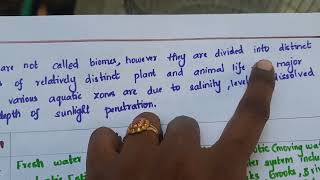 are not called biomes, however they are divided into distinct
s of relatively distinct plant and animal life major
various aquatic zons are due to salinity, level dissolved
depth of sunlight penutration.
Fresh water
otic (moving wat
ter system inclu
ks, Brooks, Ri